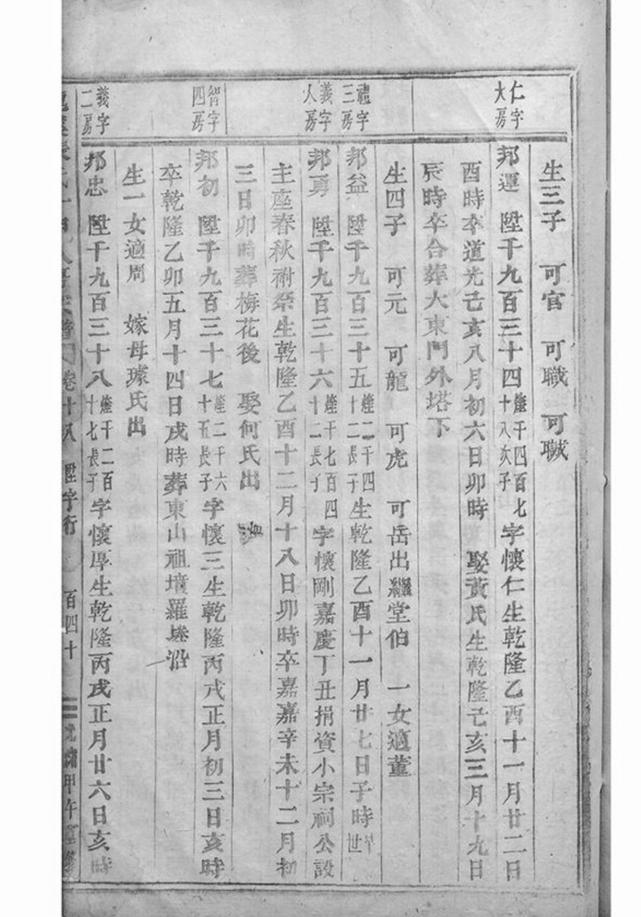 仁字大房
禮字三房
義字人房
智字四房
義字二房
生三子 可官 可職 可職
邦運 陞千九百三十四 煃千四百七十八次子 字懷仁生乾隆乙酉十一月廿二日
酉時卒道光己亥八月初六日卯時 娶黃氏生乾隆己亥三月十九日
辰時卒合葬大東門外塔下
生四子 可元 可龍 可虎 可岳出繼堂伯 一女適董
邦益 陞千九百三十五 煃一千四百二十子 生乾隆乙酉十一月廿七日子時 早世
邦勇 陞千九百三十六 煃千七百四十二長子 字懷剛嘉慶丁丑捐資小宗祠公設
主座春秋祔祭生乾隆乙酉十二月十八日卯時卒嘉嘉辛未十二月初
三日卯時葬梅花後 娶何氏出
邦初 陞千九百三十七 煃二千六十五長子 字懷三生乾隆丙戌正月初三日亥時
卒乾隆乙卯五月十四日戌時葬東山祖墳羅墘沿
生一女適周 嫁母璩氏出
邦忠 陞千九百三十八 煃千二百十七長子 字懷厚生乾隆丙戌正月廿六日亥時
卷十八 陞字行 百四十 甲午